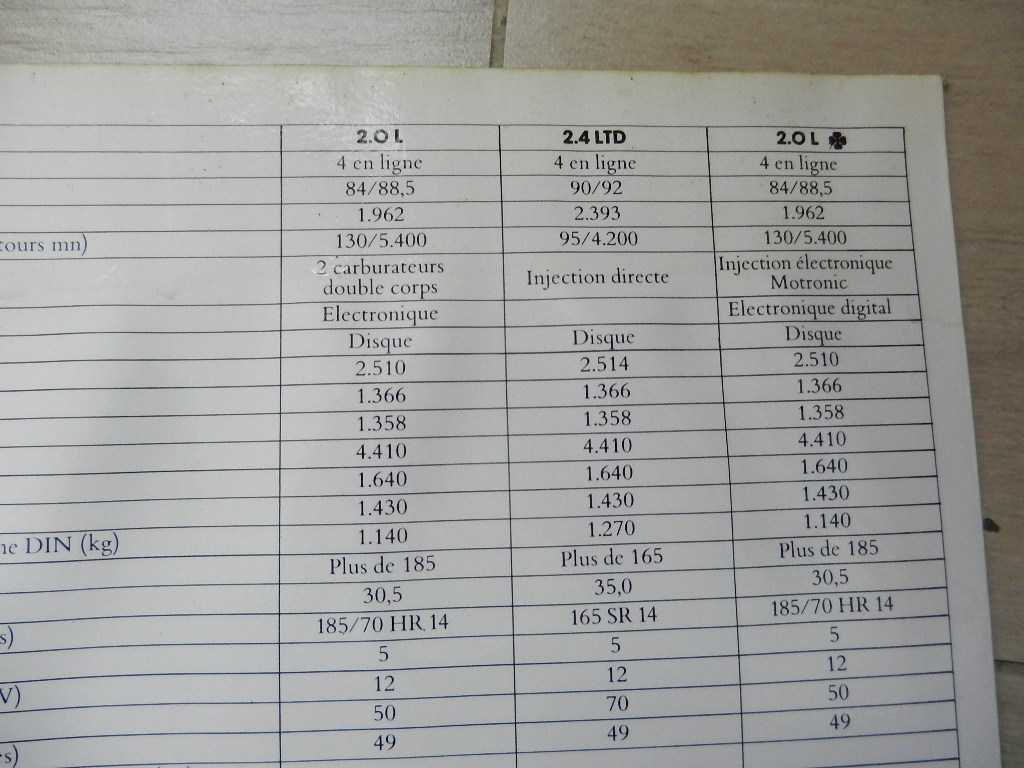 2.0 L 2.4 LTD 2.0 L
4 en ligne 4 en ligne 4 en ligne
84/88,5 90/92 84/88,5
1.962 2.393 1.962
tours mn) 130/5.400 95/4.200 130/5.400
2 carburateurs
double corps Injection directe Injection électronique
Motronic
Electronique Electronique digital
Disque Disque Disque
2.510 2.514 2.510
1.366 1.366 1.366
1.358 1.358 1.358
4.410 4.410 4.410
1.640 1.640 1.640
1.430 1.430 1.430
ne DIN (kg) 1.140 1.270 1.140
Plus de 185 Plus de 165 Plus de 185
30,5 35,0 30,5
s) 185/70 HR 14 165 SR 14 185/70 HR 14
5 5 5
V) 12 12 12
50 70 50
es) 49 49 49